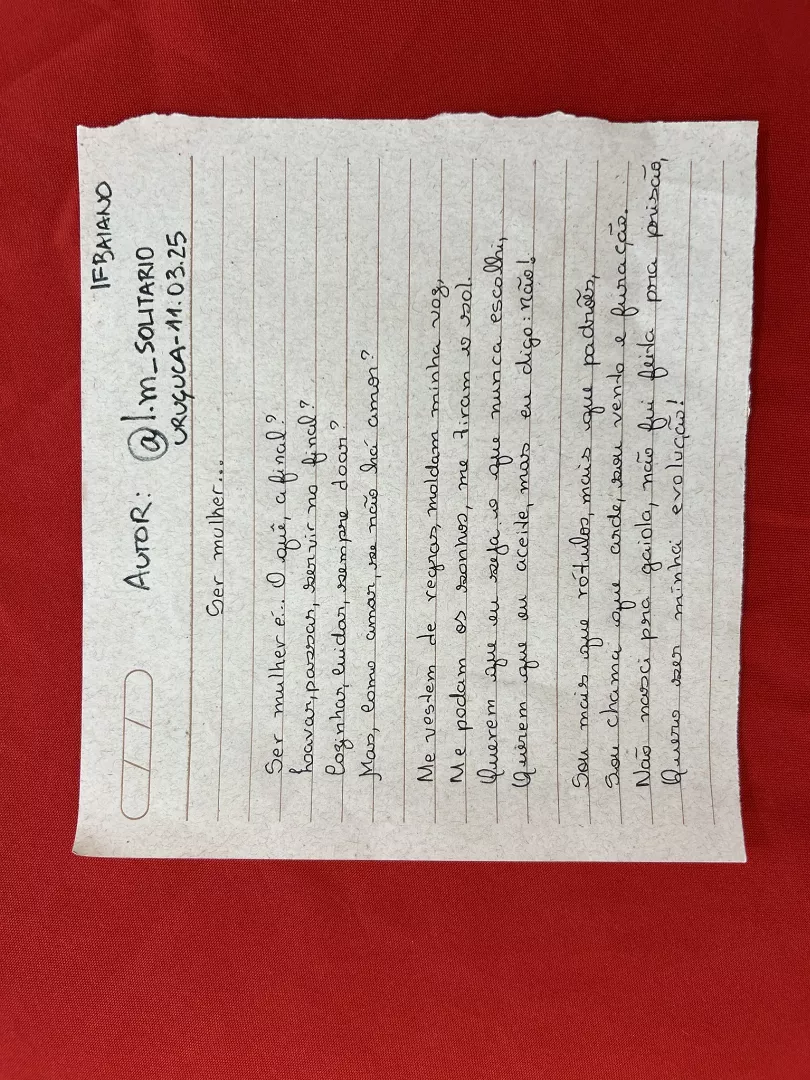 IFBAIANO
AUTOR: @l.m_SOLITARIO
URUÇUCA-11.03.25
/ /
Ser mulher...
Ser mulher é... O quê, a final?
Lavar, passar, servir no final?
Cozinhar, cuidar, sempre doar?
Mas, como amar, se não há amor?
Me vestem de regras, moldam minha voz,
Me podam os sonhos, me tiram o sol.
Querem que eu seja o que nunca escolhi,
Querem que eu aceite, mas eu digo: não!
Sou mais que rótulos, mais que padrões,
Sou chama que arde, sou vento e furação.
Não nasci pra gaiola, não fui feita pra prisão,
Quero ser minha evolução!